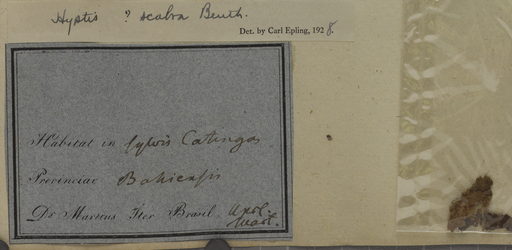 Hyptis ? scabra Benth.
Det. by Carl Epling, 1928.
Habitat in sylvis Catingas
Provinciae Bahiensis
Dr Martius Iter Brasil.